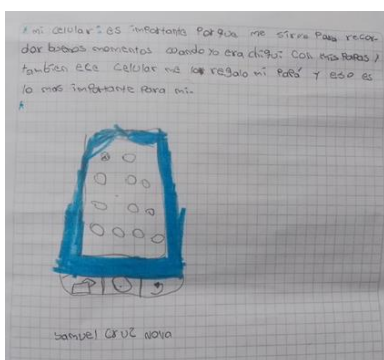 mi celular: es importante porque me sirve para recor-
dar buenos momentos cuando yo era chiqui con mis papas,
tambien ese celular me lo regalo mi papá y eso es
lo mas importante para mi.
Samuel Cruz Nova